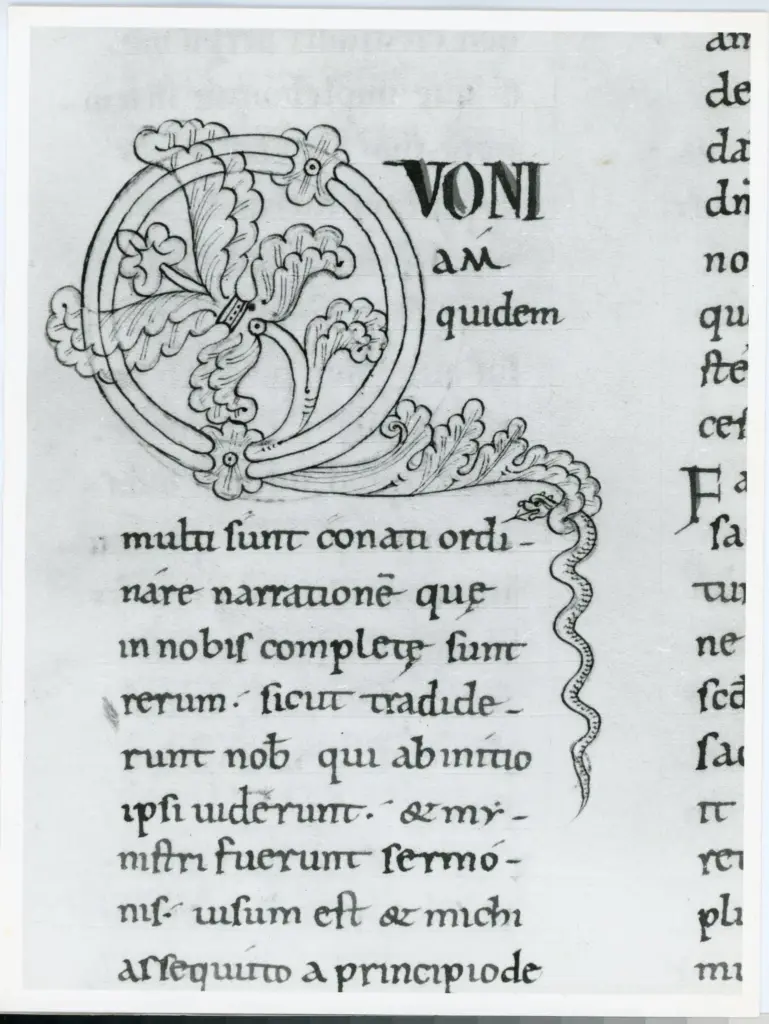 QVONI
am
quidem
multi sunt conati ordi-
nare narrationē quę
in nobis completę sunt
rerum. sicut tradide-
runt nob̄ qui ab initio
ipsi uiderunt. & my-
nistri fuerunt sermo-
nis. uisum est & michi
assequuto a principio de
an
de
da
dn̄
no
qu
ste
ces
Fa
sa
tur
ne
scd̄
sac
tt
ret
pli
mi